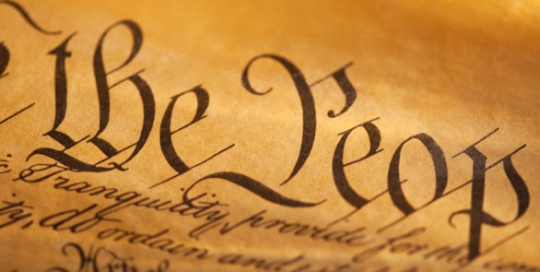 the Peop
Tranquility, provide for the
ty, do ordain and